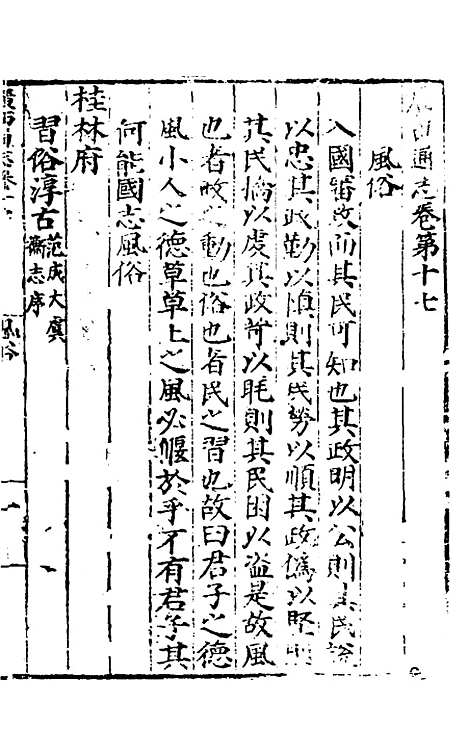 通志卷第十七
風俗
入國審政而其民可知也其政明以公則其民說
以忠其政勤以慎則其民勞以順其政僞以堅則
其民憍以虔其政苛以眊則其民困以盜是故風
也者政之動也俗也者民之習也故曰君子之德
風小人之德草草上之風必偃於乎不有君子其
何能國志風俗
桂林府
習俗淳古范成大虞
衡志序